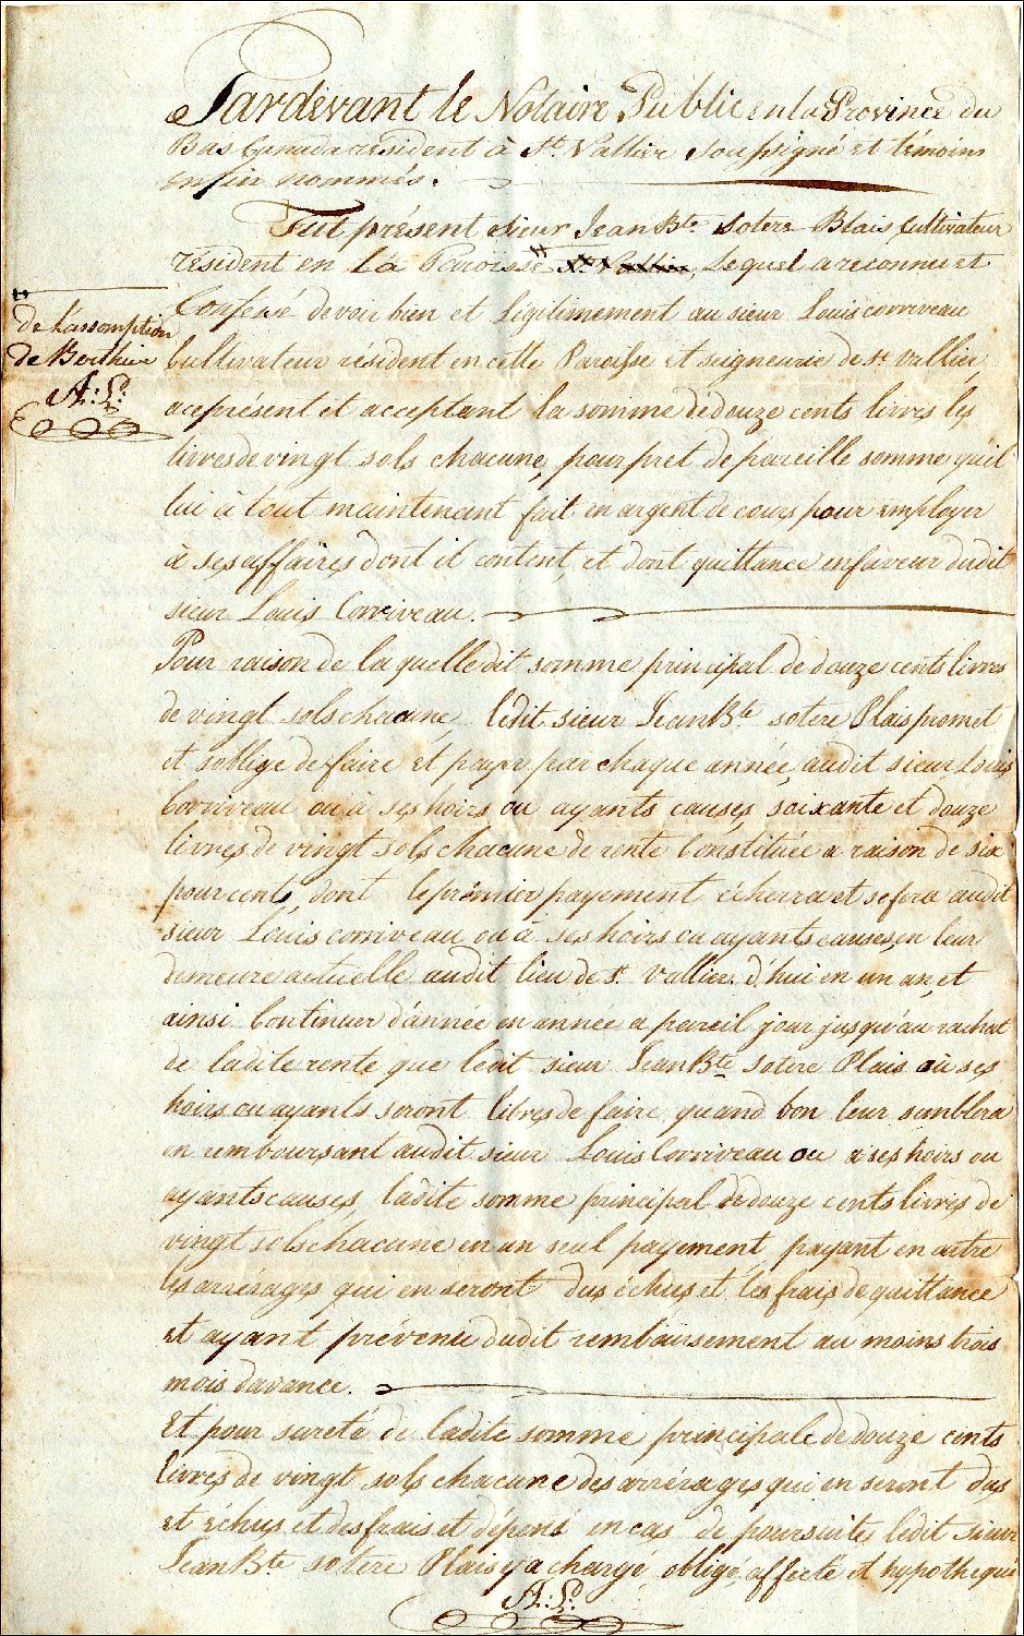 Pardevant le Notaire Public en la Province du
Bas Canada résident à St. Vallier soussigné et témoins
enfin nommés.
Fut présent sieur Jean Bte. Sotere Blais Cultivateur
résident en La Paroisse St. Vallier, Lequel a reconnu et
Confessé devoir bien et légitimement au sieur Louis corriveau
de L'assomption
de Berthier
A: L:
Cultivateur résident en cette Paroisse et seigneurie de St. Vallier,
ace présent et acceptant la somme dédouze cents livres les
livres de vingt sols chacune, pour pret de pareille somme qu'il
lui à tout maintenant fait en argent de cours pour employer
à ses affaires dont il content, et dont quittance enfaveur dudit
sieur Louis Corriveau.
Pour raison de laquelle dit somme principal de douze cents livres
de vingt sols chacune, ledit sieur Jean Bte sotere Blais promet
et soblige de faire et payer par chaque année, audit sieur Louis
Corriveau ou à ses hoirs ou ayants causes, soixante et douze
livres de vingt sols chacune de rente Constituée a raison de six
pour cents, dont le prémier payement écherra et se fera audit
sieur Louis corriveau ou à ses hoirs ou ayants causes, en leur
demeure actuelle audit lieu de St. Vallier. d'hui en un an, et
ainsi Continuer d'année en année a pareil jour jusqu'au rachat
de ladite rente que ledit sieur Jean Bte Sotere Blais où ses
hoirs ou ayants seront libres de faire quand bon leur semblera
en remboursant audit sieur Louis Corriveau ou a ses hoirs ou
ayants causes, ladite somme principal de douze cents livres de
vingt sols chacune en un seul payement, payant en outre
les arrerages qui en seront dus échus et les frais de quittance
et ayant prévenu dudit remboursement au moins trois
mois d'avance.
Et pour sureté de ladite somme principale de douze cents
livres de vingt sols chacune des arrérages qui en seront dus
et échus et des frais et dépens en cas de poursuite, ledit sieur
Jean Bte sotere Blais y a chargé, obligé, affecté et hypothequé
A: L: